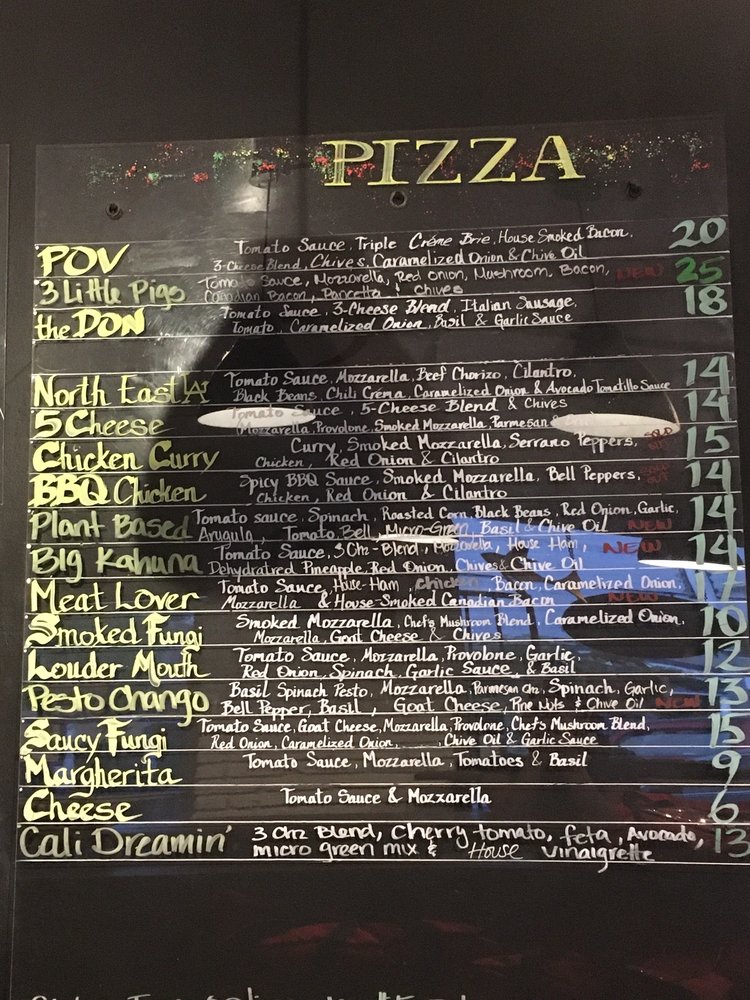 PIZZA
POV Tomato Sauce, Triple Créme Brie, House Smoked Bacon, 20
3-Cheese Blend, Chives, Caramelized Onion & Chive Oil
3 Little Pigs Tomato Sauce, Mozzarella, Red Onion, Mushroom, Bacon, NEW 25
Canadian Bacon, Pancetta & Chives
the DON Tomato Sauce, 3-Cheese Blend, Italian Sausage, 18
Tomato, Caramelized Onion, Basil & Garlic Sauce
North East LA Tomato Sauce, Mozzarella, Beef Chorizo, Cilantro, 14
Black Beans, Chili Créma, Caramelized Onion & Avocado Tomatillo Sauce
5 Cheese Tomato Sauce, 5-Cheese Blend & Chives 14
Mozzarella, Provolone, Smoked Mozzarella, Parmesan
Chicken Curry Curry, Smoked Mozzarella, Serrano Peppers, SOLD OUT 15
Chicken, Red Onion & Cilantro
BBQ Chicken Spicy BBQ Sauce, Smoked Mozzarella, Bell Peppers, SOLD OUT 14
Chicken, Red Onion & Cilantro
Plant Based Tomato sauce, Spinach, Roasted Corn, Black Beans, Red Onion, Garlic, 14
Arugula, Tomato, Bell, Micro-Green, Basil & Chive Oil NEW
Big Kahuna Tomato Sauce, 3 Chz-Blend, Mozzarella, House Ham, NEW 14
Dehydratred Pineapple, Red Onion, Chives & Chive Oil
Meat Lover Tomato Sauce, House-Ham, chicken, Bacon, Caramelized Onion, 17
Mozzarella & House-Smoked Canadian Bacon NEW
Smoked Fungi Smoked Mozzarella, Chef's Mushroom Blend, Caramelized Onion, 10
Mozzarella, Goat Cheese & Chives
Louder Mouth Tomato Sauce, Mozzarella, Provolone, Garlic, 12
Red Onion, Spinach, Garlic Sauce, & Basil
Pesto Chango Basil Spinach Pesto, Mozzarella, Parmesan Chz, Spinach, Garlic, 13
Bell Pepper, Basil, Goat Cheese, Pine Nuts & Chive Oil NEW
Saucy Fungi Tomato Sauce, Goat Cheese, Mozzarella, Provolone, Chef's Mushroom Blend, 15
Red Onion, Caramelized Onion, Chive Oil & Garlic Sauce
Margherita Tomato Sauce, Mozzarella, Tomatoes & Basil 9
Cheese Tomato Sauce & Mozzarella 6
Cali Dreamin' 3 Chz Blend, Cherry tomato, feta, Avocado, 13
micro green mix & House vinaigrette